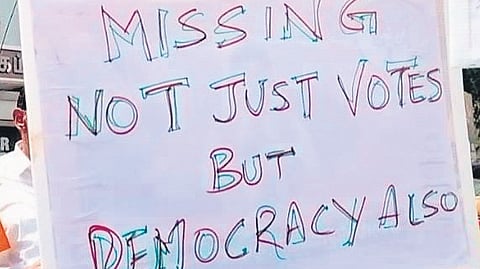 MISSING
NOT JUST VOTES
BUT
DEMOCRACY ALSO